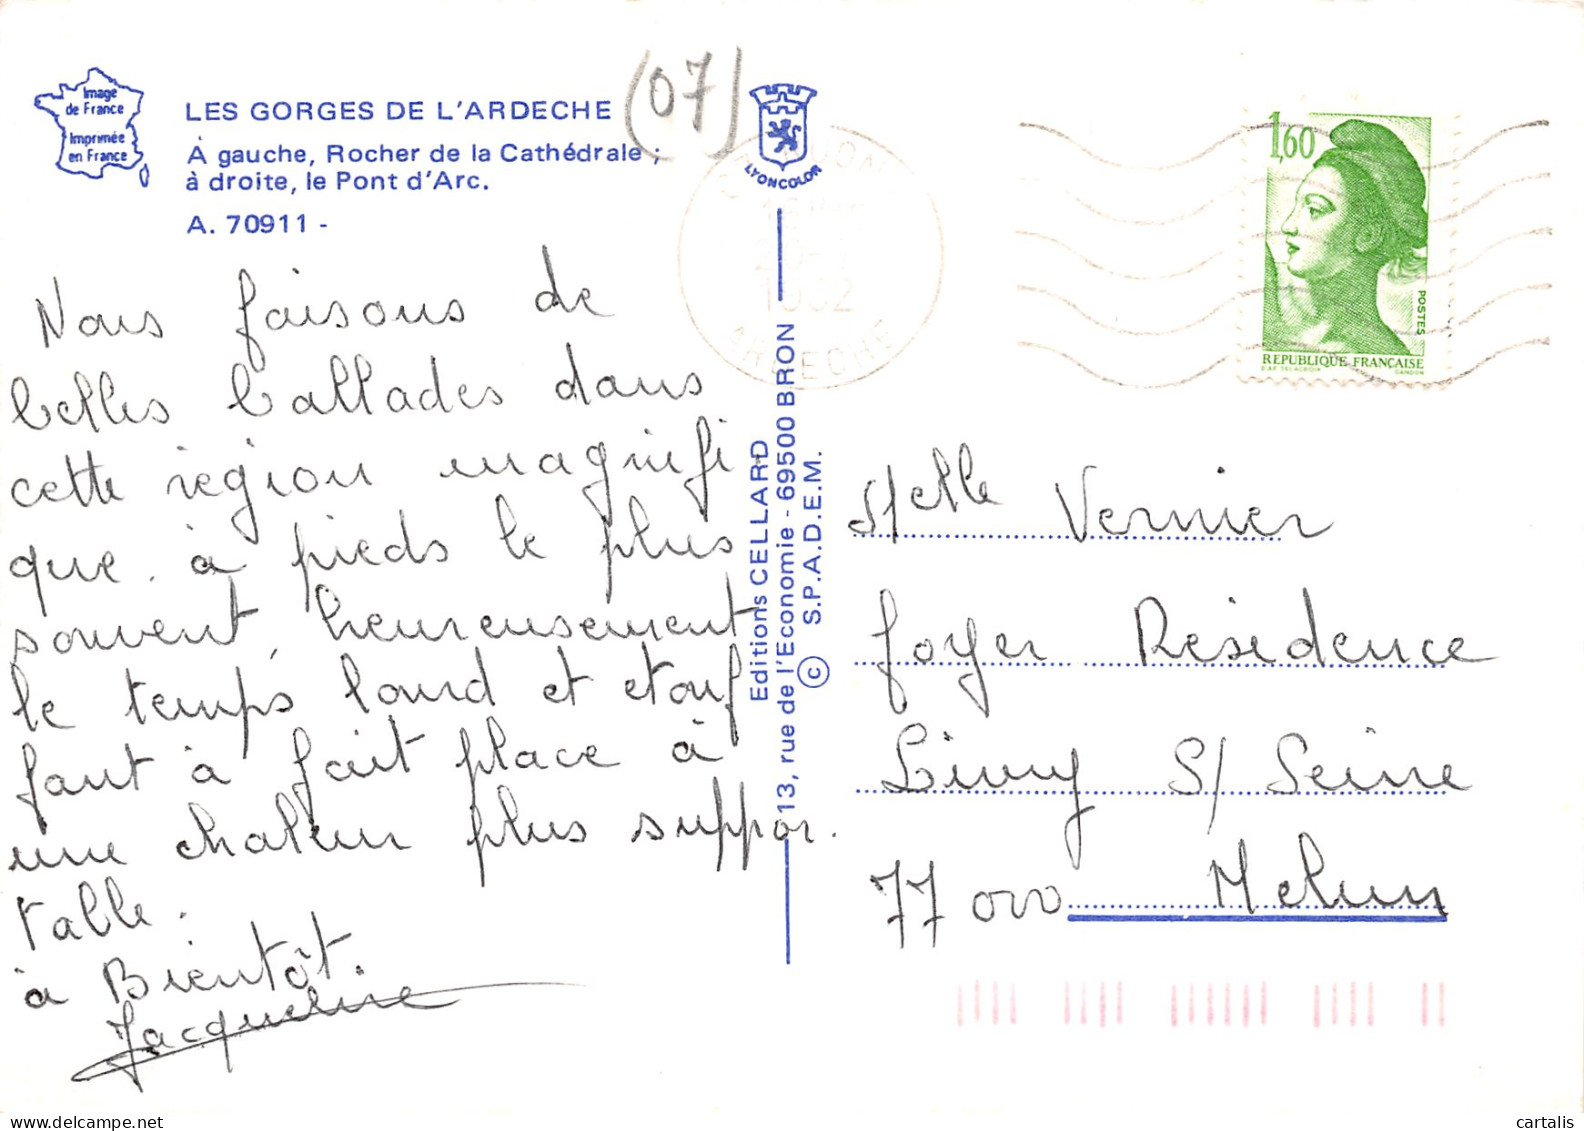 Image
de France
Imprimée
en France
LES GORGES DE L'ARDECHE
(07)
À gauche, Rocher de la Cathédrale ;
à droite, le Pont d'Arc.
A. 70911 -
Nous faisons de
belles ballades dans
cette région magnifi
que. à pieds le plus
souvent, heureusement
le temps lourd et etouf
fant à fait place à
une chaleur plus suppor.
table.
à Bientôt.
Jacqueline
LYONCOLOR
ARDECHE
Editions CELLARD
13, rue de l'Economie - 69500 BRON
© S.P.A.D.E.M.
1,60
POSTES
REPUBLIQUE FRANÇAISE
D'AP. DELACROIX GANDON
Melle Vernier
foyer Résidence
Livry S/ Seine
77 000 Melun
cartalis